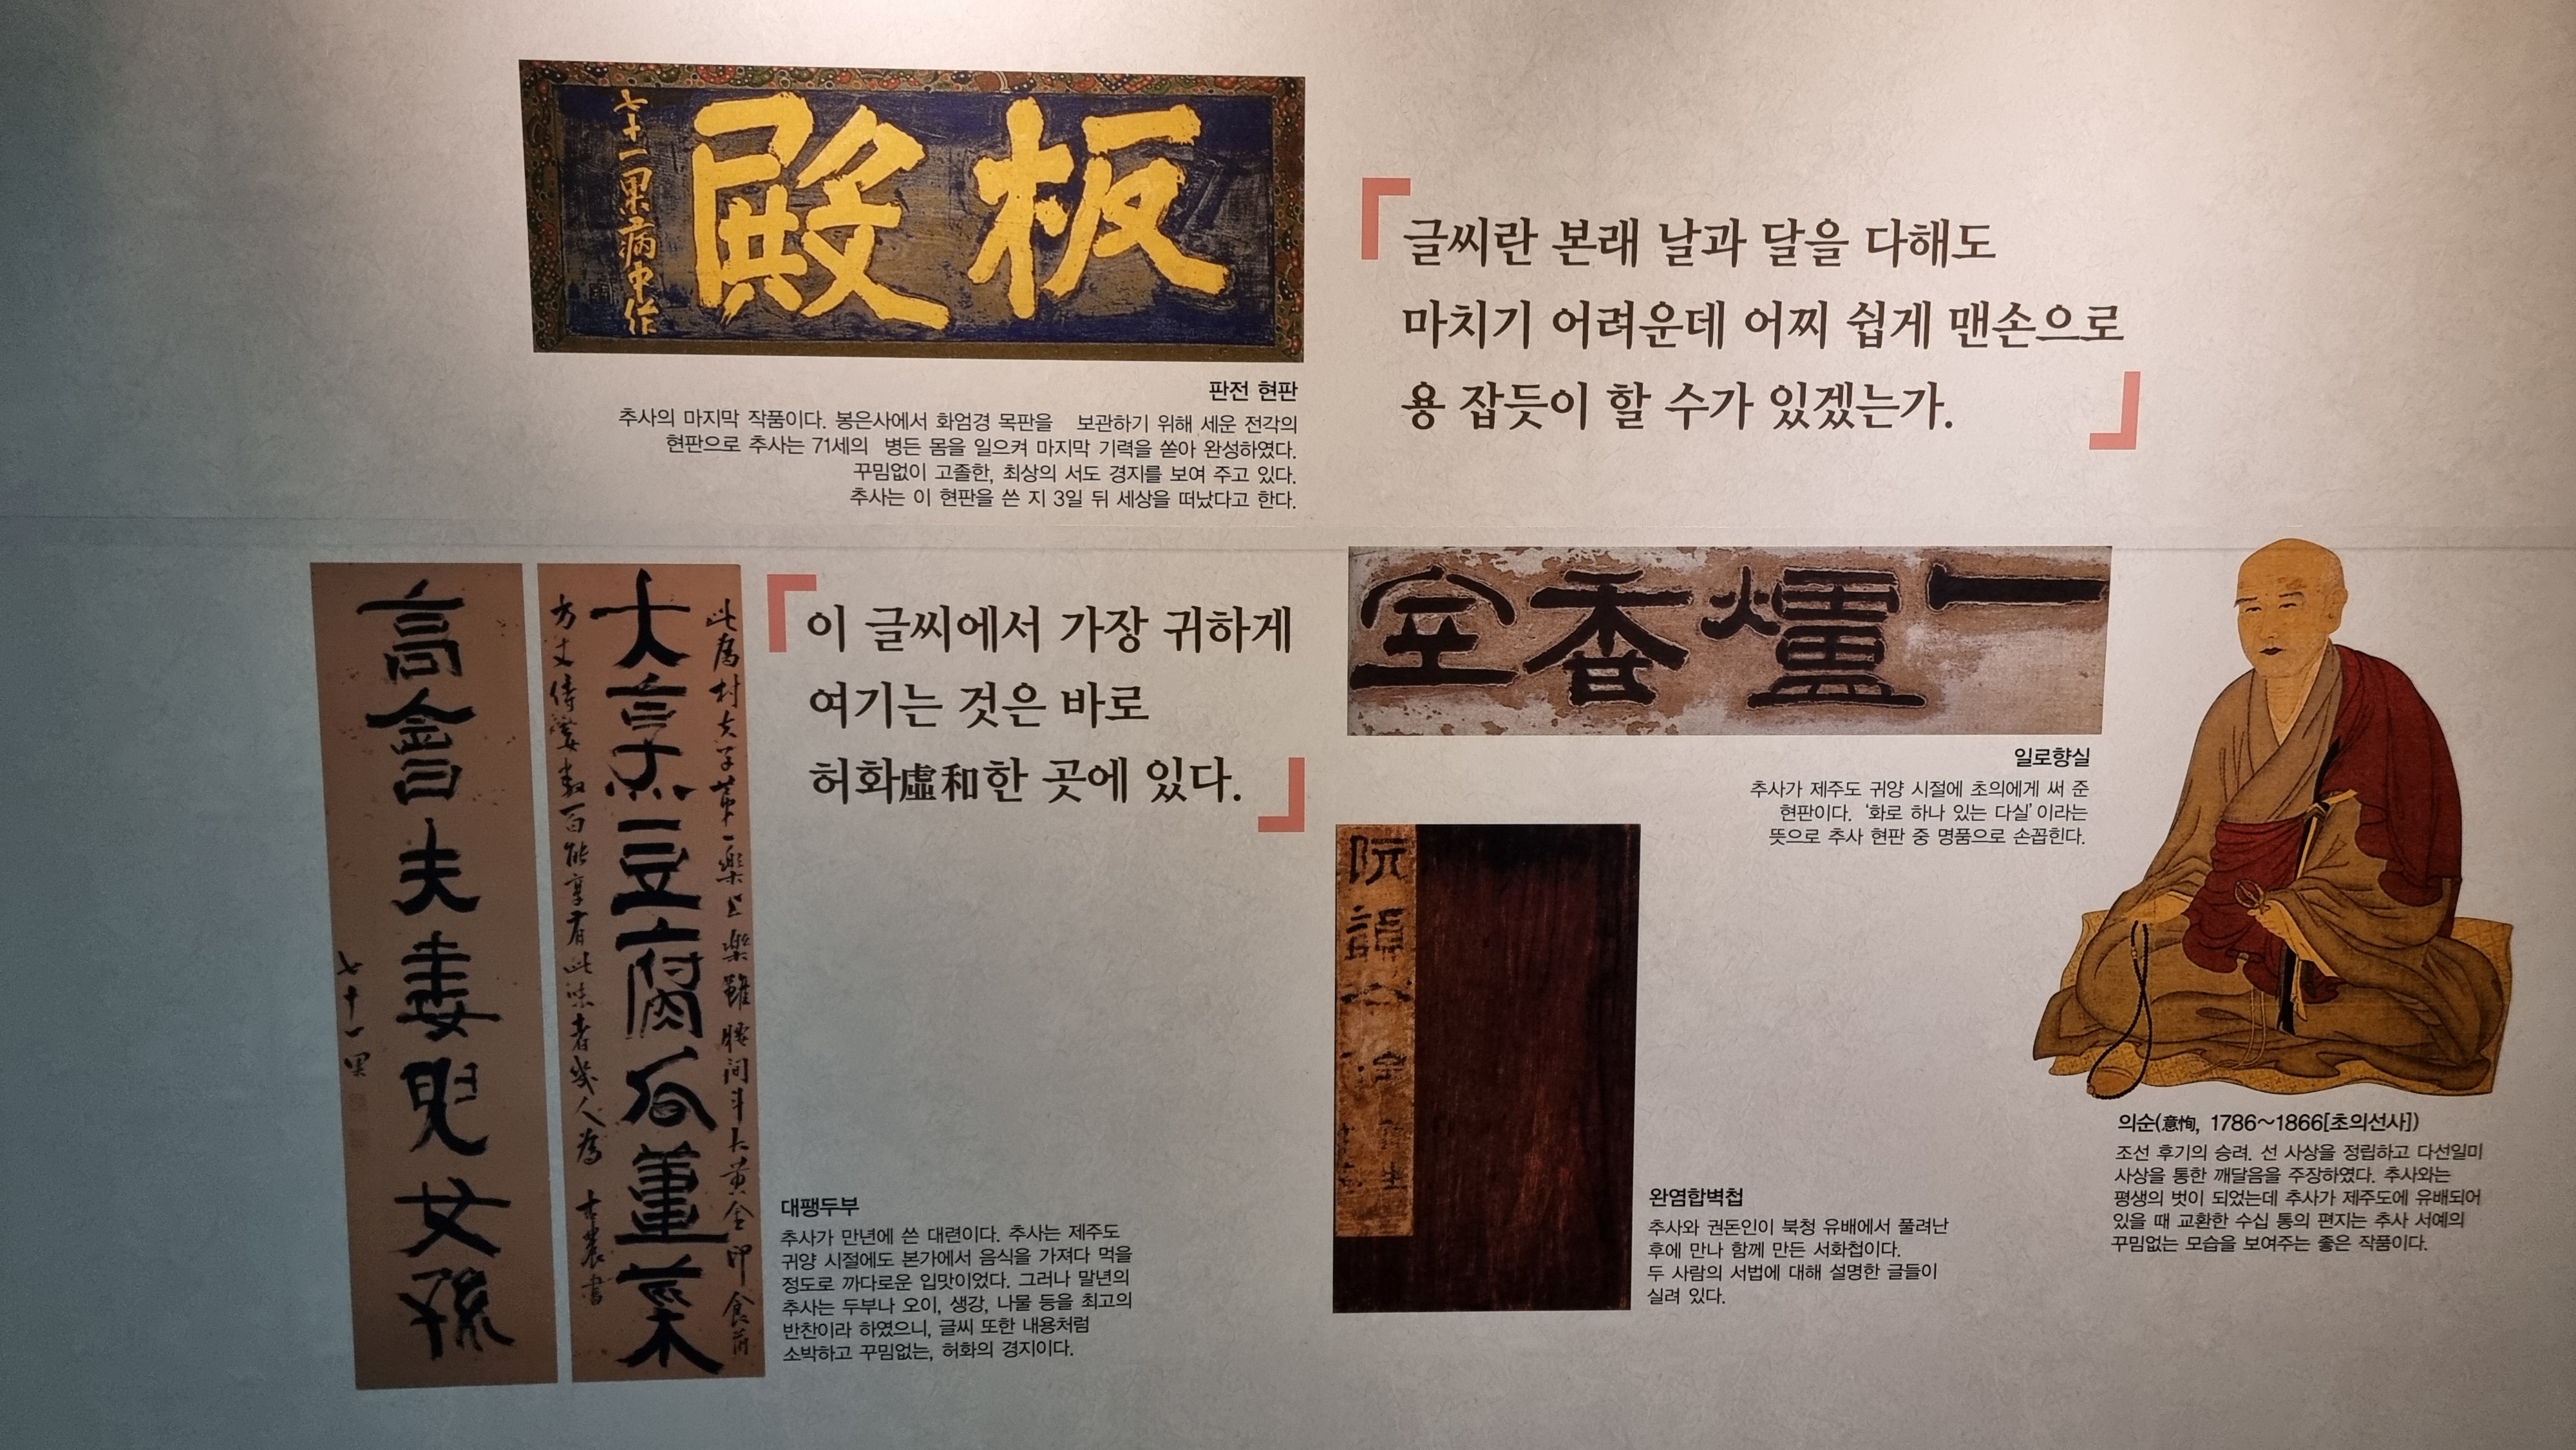 板殿
七十一果病中作
판전 현판
추사의 마지막 작품이다. 봉은사에서 화엄경 목판을 보관하기 위해 세운 전각의
현판으로 추사는 71세의 병든 몸을 일으켜 마지막 기력을 쏟아 완성하였다.
꾸밈없이 고졸한, 최상의 서도 경지를 보여 주고 있다.
추사는 이 현판을 쓴 지 3일 뒤 세상을 떠났다고 한다.
글씨란 본래 날과 달을 다해도
마치기 어려운데 어찌 쉽게 맨손으로
용 잡듯이 할 수가 있겠는가.
大烹豆腐瓜薑菜
高會夫妻兒女孫
此爲村夫子第一樂上樂雖腰間斗大黃金印食前
方丈侍妾數百能享有此味者幾人爲 古農書
七十一果
이 글씨에서 가장 귀하게
여기는 것은 바로
허화虛和한 곳에 있다.
대팽두부
추사가 만년에 쓴 대련이다. 추사는 제주도
귀양 시절에도 본가에서 음식을 가져다 먹을
정도로 까다로운 입맛이었다. 그러나 말년의
추사는 두부나 오이, 생강, 나물 등을 최고의
반찬이라 하였으니, 글씨 또한 내용처럼
소박하고 꾸밈없는, 허화의 경지이다.
一爐香室
일로향실
추사가 제주도 귀양 시절에 초의에게 써 준
현판이다. ‘화로 하나 있는 다실’이라는
뜻으로 추사 현판 중 명품으로 손꼽힌다.
阮
완염합벽첩
추사와 권돈인이 북청 유배에서 풀려난
후에 만나 함께 만든 서화첩이다.
두 사람의 서법에 대해 설명한 글들이
실려 있다.
의순(意恂, 1786~1866[초의선사])
조선 후기의 승려. 선 사상을 정립하고 다선일미
사상을 통한 깨달음을 주장하였다. 추사와는
평생의 벗이 되었는데 추사가 제주도에 유배되어
있을 때 교환한 수십 통의 편지는 추사 서예의
꾸밈없는 모습을 보여주는 좋은 작품이다.